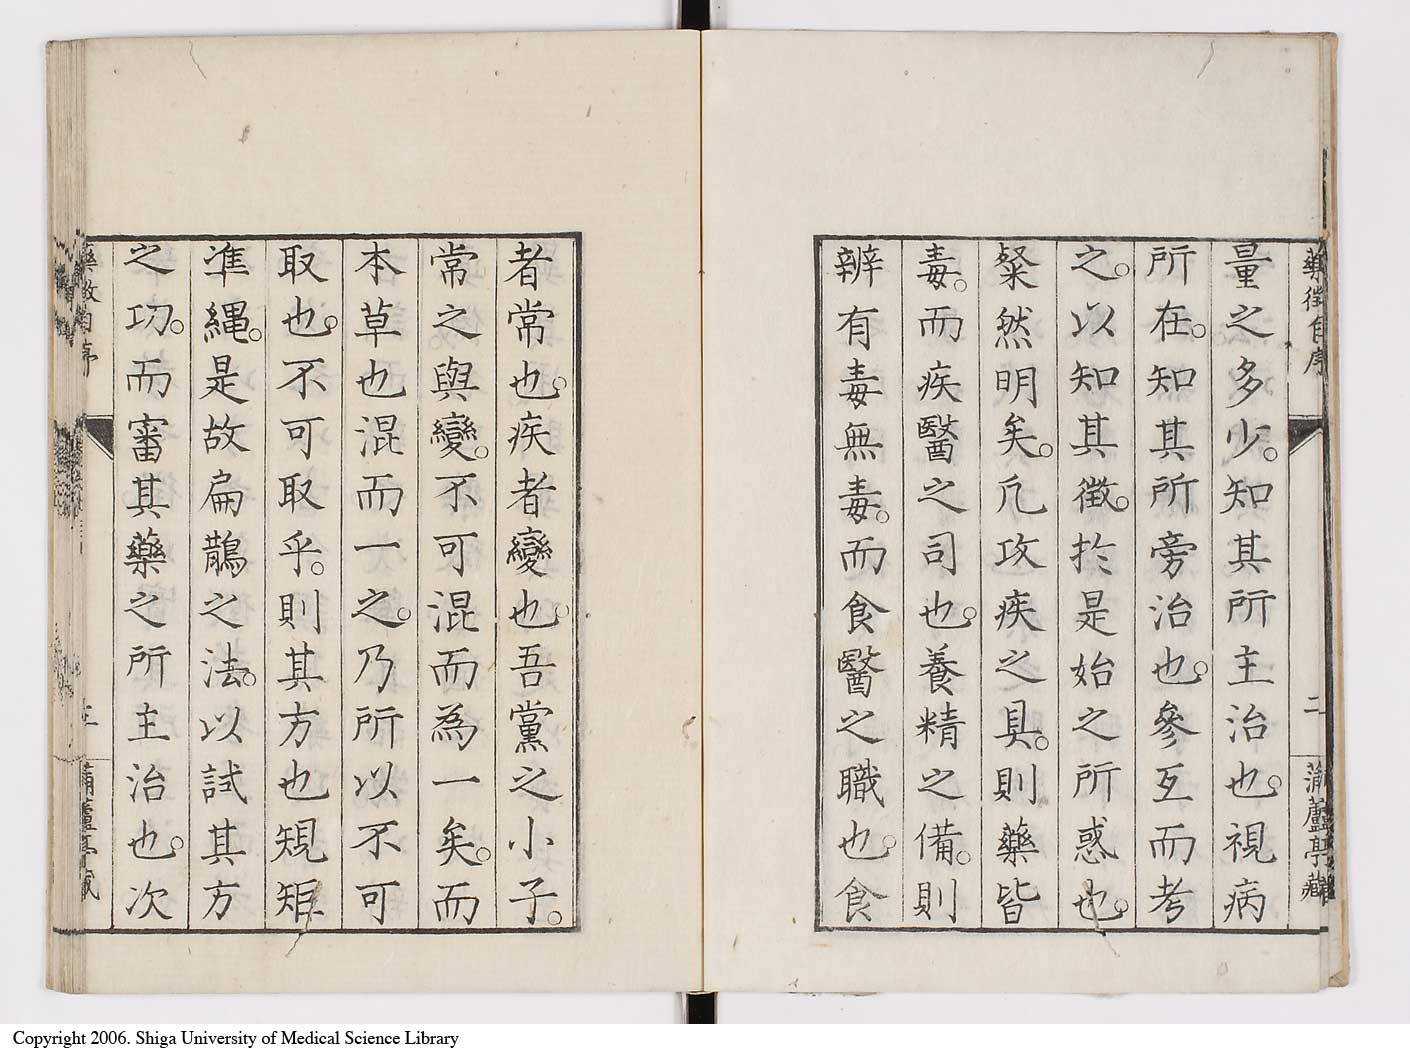 藥徴自序
二
蒲蘆亭藏
量之多少。知其所主治也。視病
所在。知其所旁治也。參互而考
之。以知其徴。於是始之所惑也。
粲然明矣。凡攻疾之具。則藥皆
毒。而疾醫之司也。養精之備。則
辨有毒無毒。而食醫之職也。食
者常也。疾者變也。吾黨之小子。
常之與變。不可混而為一矣。而
本草也混而一之。乃所以不可
取也。不可取乎。則其方也規矩
準繩。是故扁鵲之法。以試其方
之功。而審其藥之所主治也。次
Copyright 2006. Shiga University of Medical Science Library